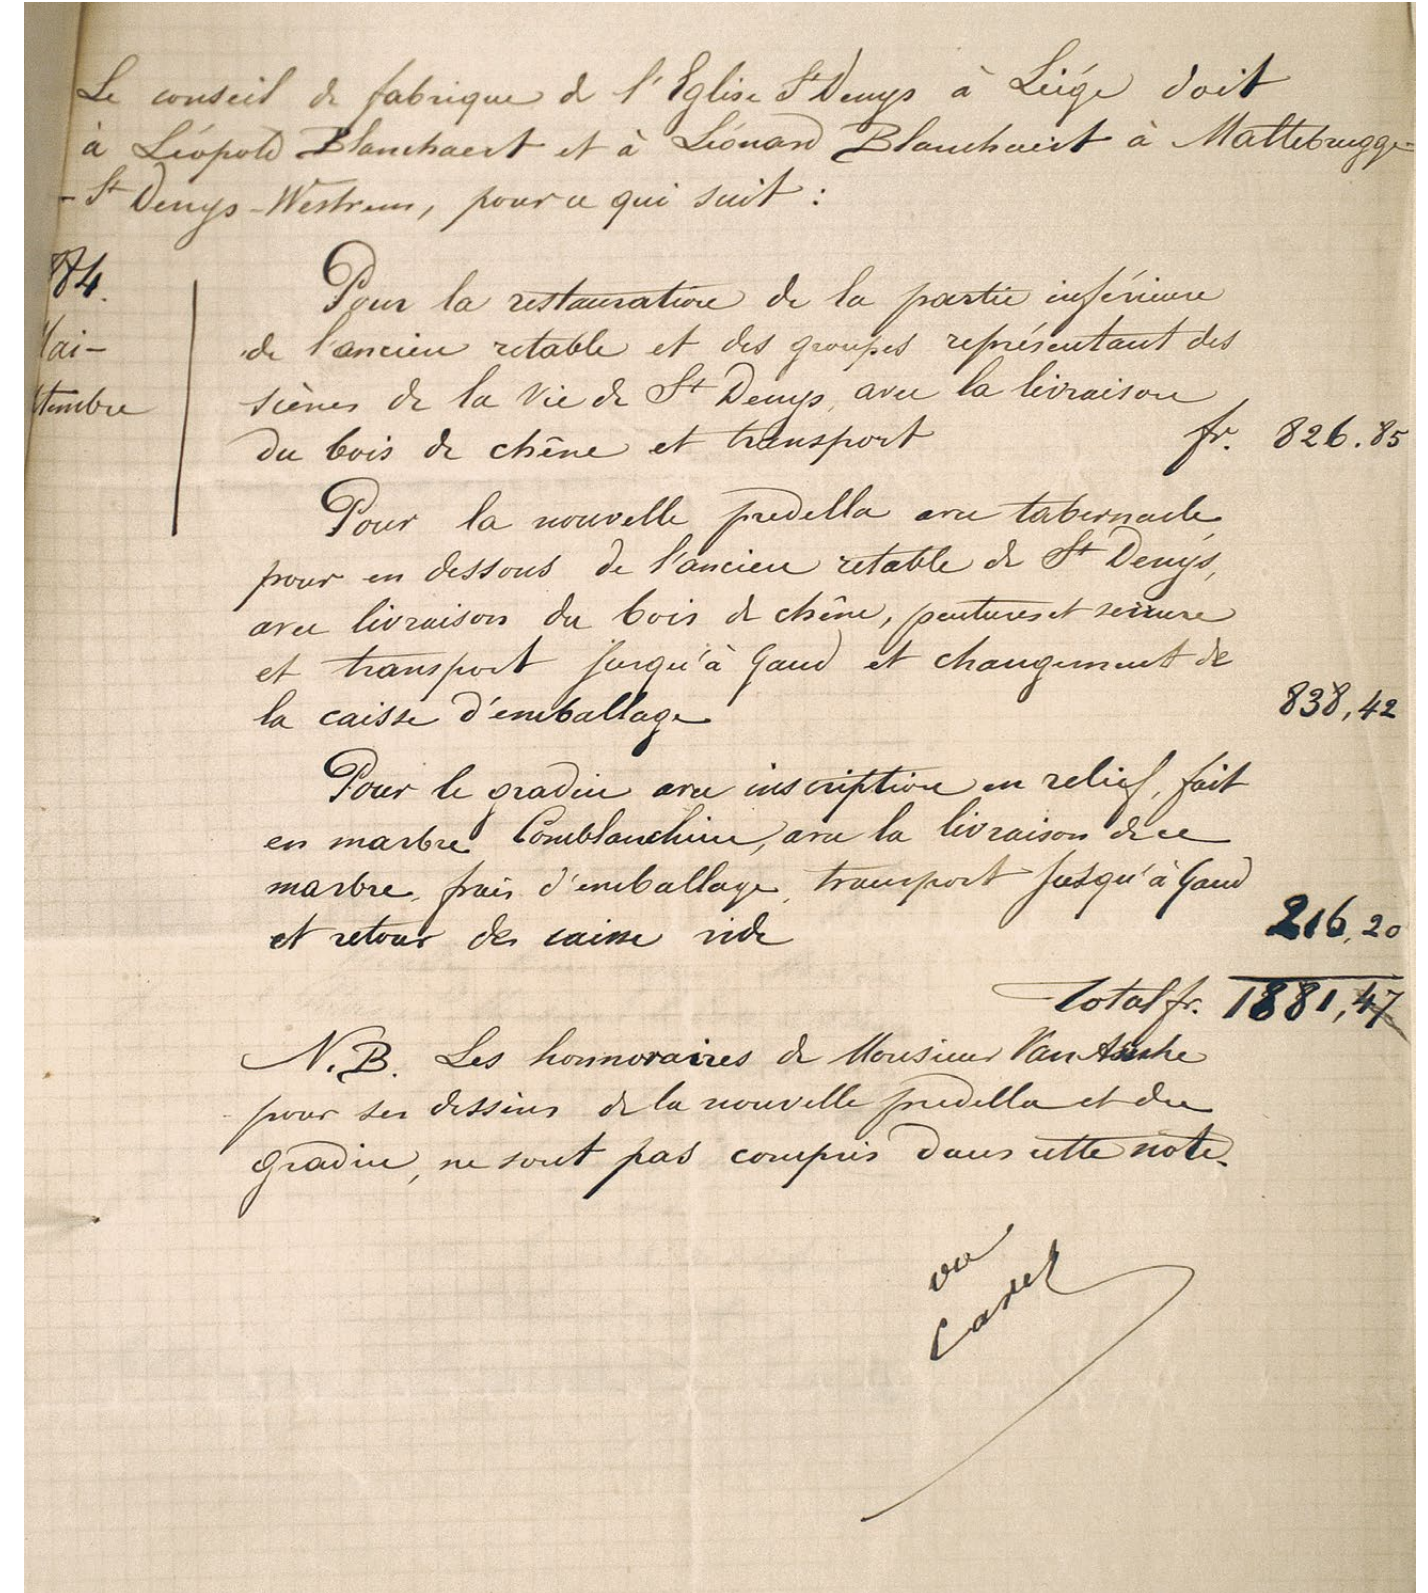 Le conseil de fabrique de l'Eglise St Denys à Liége doit
à Léopold Blanchaert et à Léonard Blanchaert à Maltebrugge-
- St Denys-Westrem, pour ce qui suit :
84.
Pour la restauration de la partie inférieure
Mai-
de l'ancien retable et des groupes représentant des
tembre
scènes de la vie de St Denys, avec la livraison
du bois de chêne et transport fr. 826.85
Pour la nouvelle predella avec tabernacle,
pour en dessous de l'ancien retable de St Denys,
avec livraison du bois de chêne, pentures et serrure
et transport jusqu'à Gand et changement de
la caisse d'emballage 838,42
Pour le gradin avec inscription en relief, fait
en marbre Comblanchien, avec la livraison de ce
marbre, frais d'emballage, transport jusqu'à Gand
et retour des caisse vide 216,20
Total fr. 1881,47
N.B. Les honnoraires de Monsieur Van Assche
pour ses dessins de la nouvelle predella et du
gradin, ne sont pas compris dans cette note.
vu